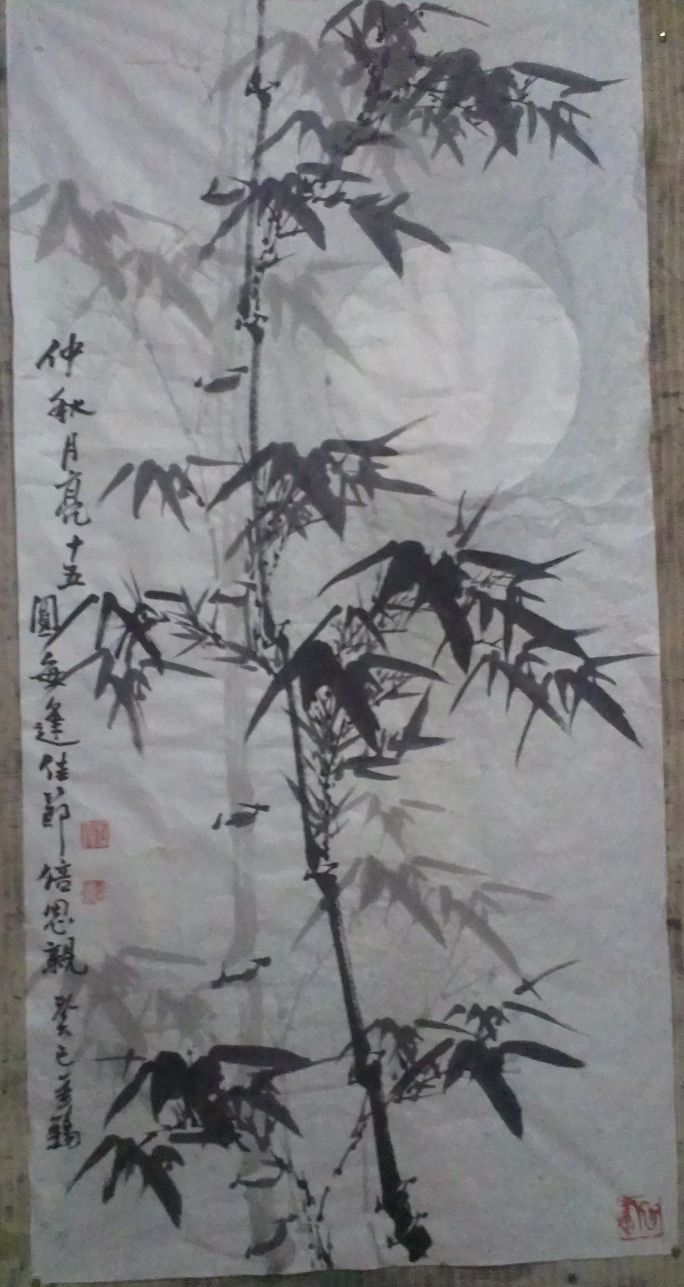 仲秋月亮十五圓每逢佳節倍思親 癸巳